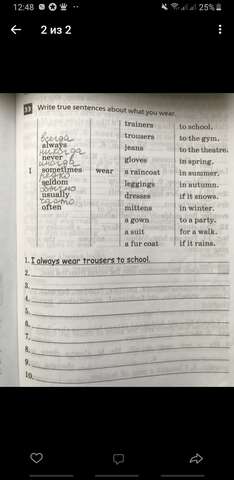 12:48
25%
2 из 2
Write true sentences about what you wear.
trainers to school.
всегда trousers to the gym.
always jeans to the theatre.
никогда
never gloves in spring.
иногда
I sometimes wear a raincoat in summer.
редко
seldom leggings in autumn.
обычно
usually dresses if it snows.
часто
often mittens in winter.
a gown to a party.
a suit for a walk.
a fur coat if it rains.
1. I always wear trousers to school.
2.
3.
4.
5.
6.
7.
8.
9.
10.